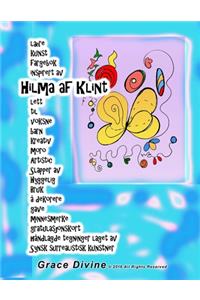 Lære
Kunst
Fargebok
inspirert av
Hilma af Klint
Lett
til
voksne
barn
kreativ
moro
Artistic
Slapper av
Hyggelig
Bruk
å dekorere
gave
Minnesmerke
gratulasjonskort
Håndlagde tegninger laget av
Synsk Surrealistisk kunstner
Grace Divine © 2016 All Rights Reserved